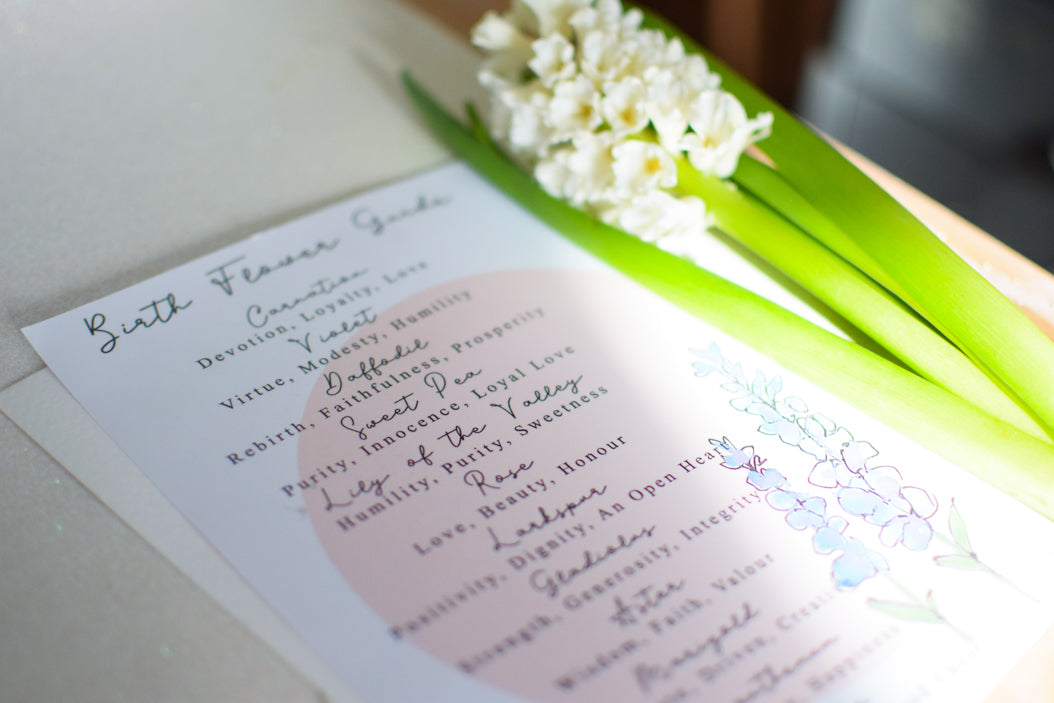 Birth Flower Guide
Carnation
Devotion, Loyalty, Love
Violet
Virtue, Modesty, Humility
Daffodil
Rebirth, Faithfulness, Prosperity
Sweet Pea
Purity, Innocence, Loyal Love
Lily of the Valley
Humility, Purity, Sweetness
Rose
Love, Beauty, Honour
Larkspur
Positivity, Dignity, An Open Heart
Gladiolas
Strength, Generosity, Integrity
Astar
Wisdom, Faith, Valour
Marigold
Driven,
Happiness